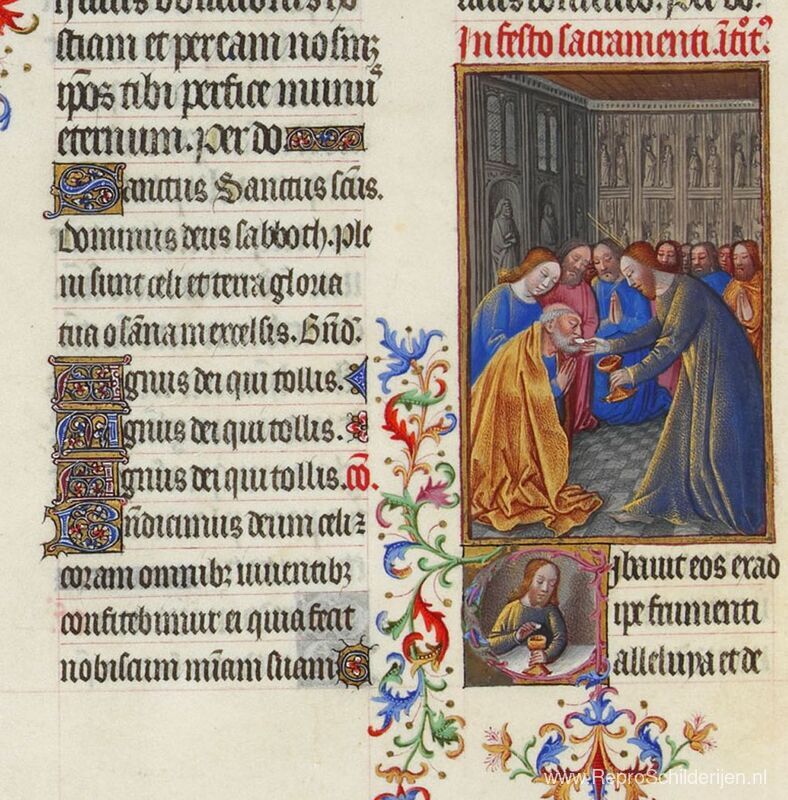 sticiam et percam nosmz
ipos tibi perfice munu
eternum. Per do
Sanctus Sanctus scus.
Dominus deus sabboth. Ple
ni sunt celi et terra gloria
tua osanna in excelsis. Bnd.
Agnus dei qui tollis.
Agnus dei qui tollis.
Agnus dei qui tollis. co.
Bndicimus deum celi z
coram omnibz uiuentibz
confitebimur ei quia fecit
nobiscum miam suam
In festo sacramenti. itoit
Cibauit eos ex ad
ipe frumenti
alleluya et de
www.ReproSchilderijen.nl